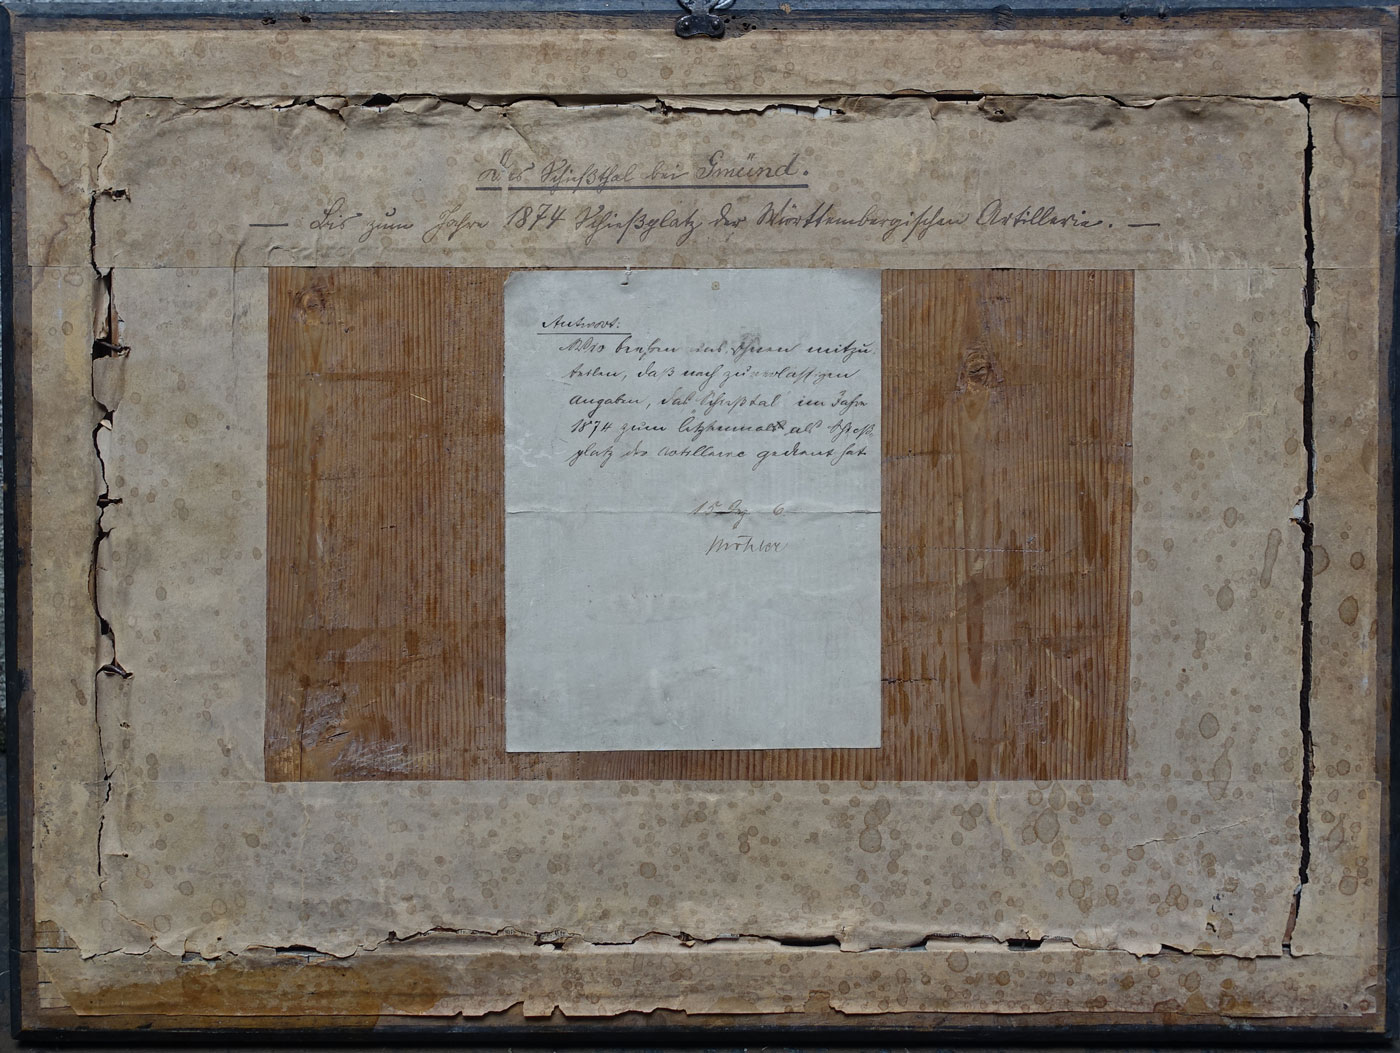 Schießthal bei Gmünd.
— Bis zum Jahre 1874 Schießplatz der Württembergischen Artillerie. —
Antwort:
Wir beehren uns Ihnen mitzu
teilen, daß nach zuverlässigen
Angaben, das Schießtal im Jahre
1874 zum letztenmale als Schieß
platz der Artillerie gedient hat
15 6.